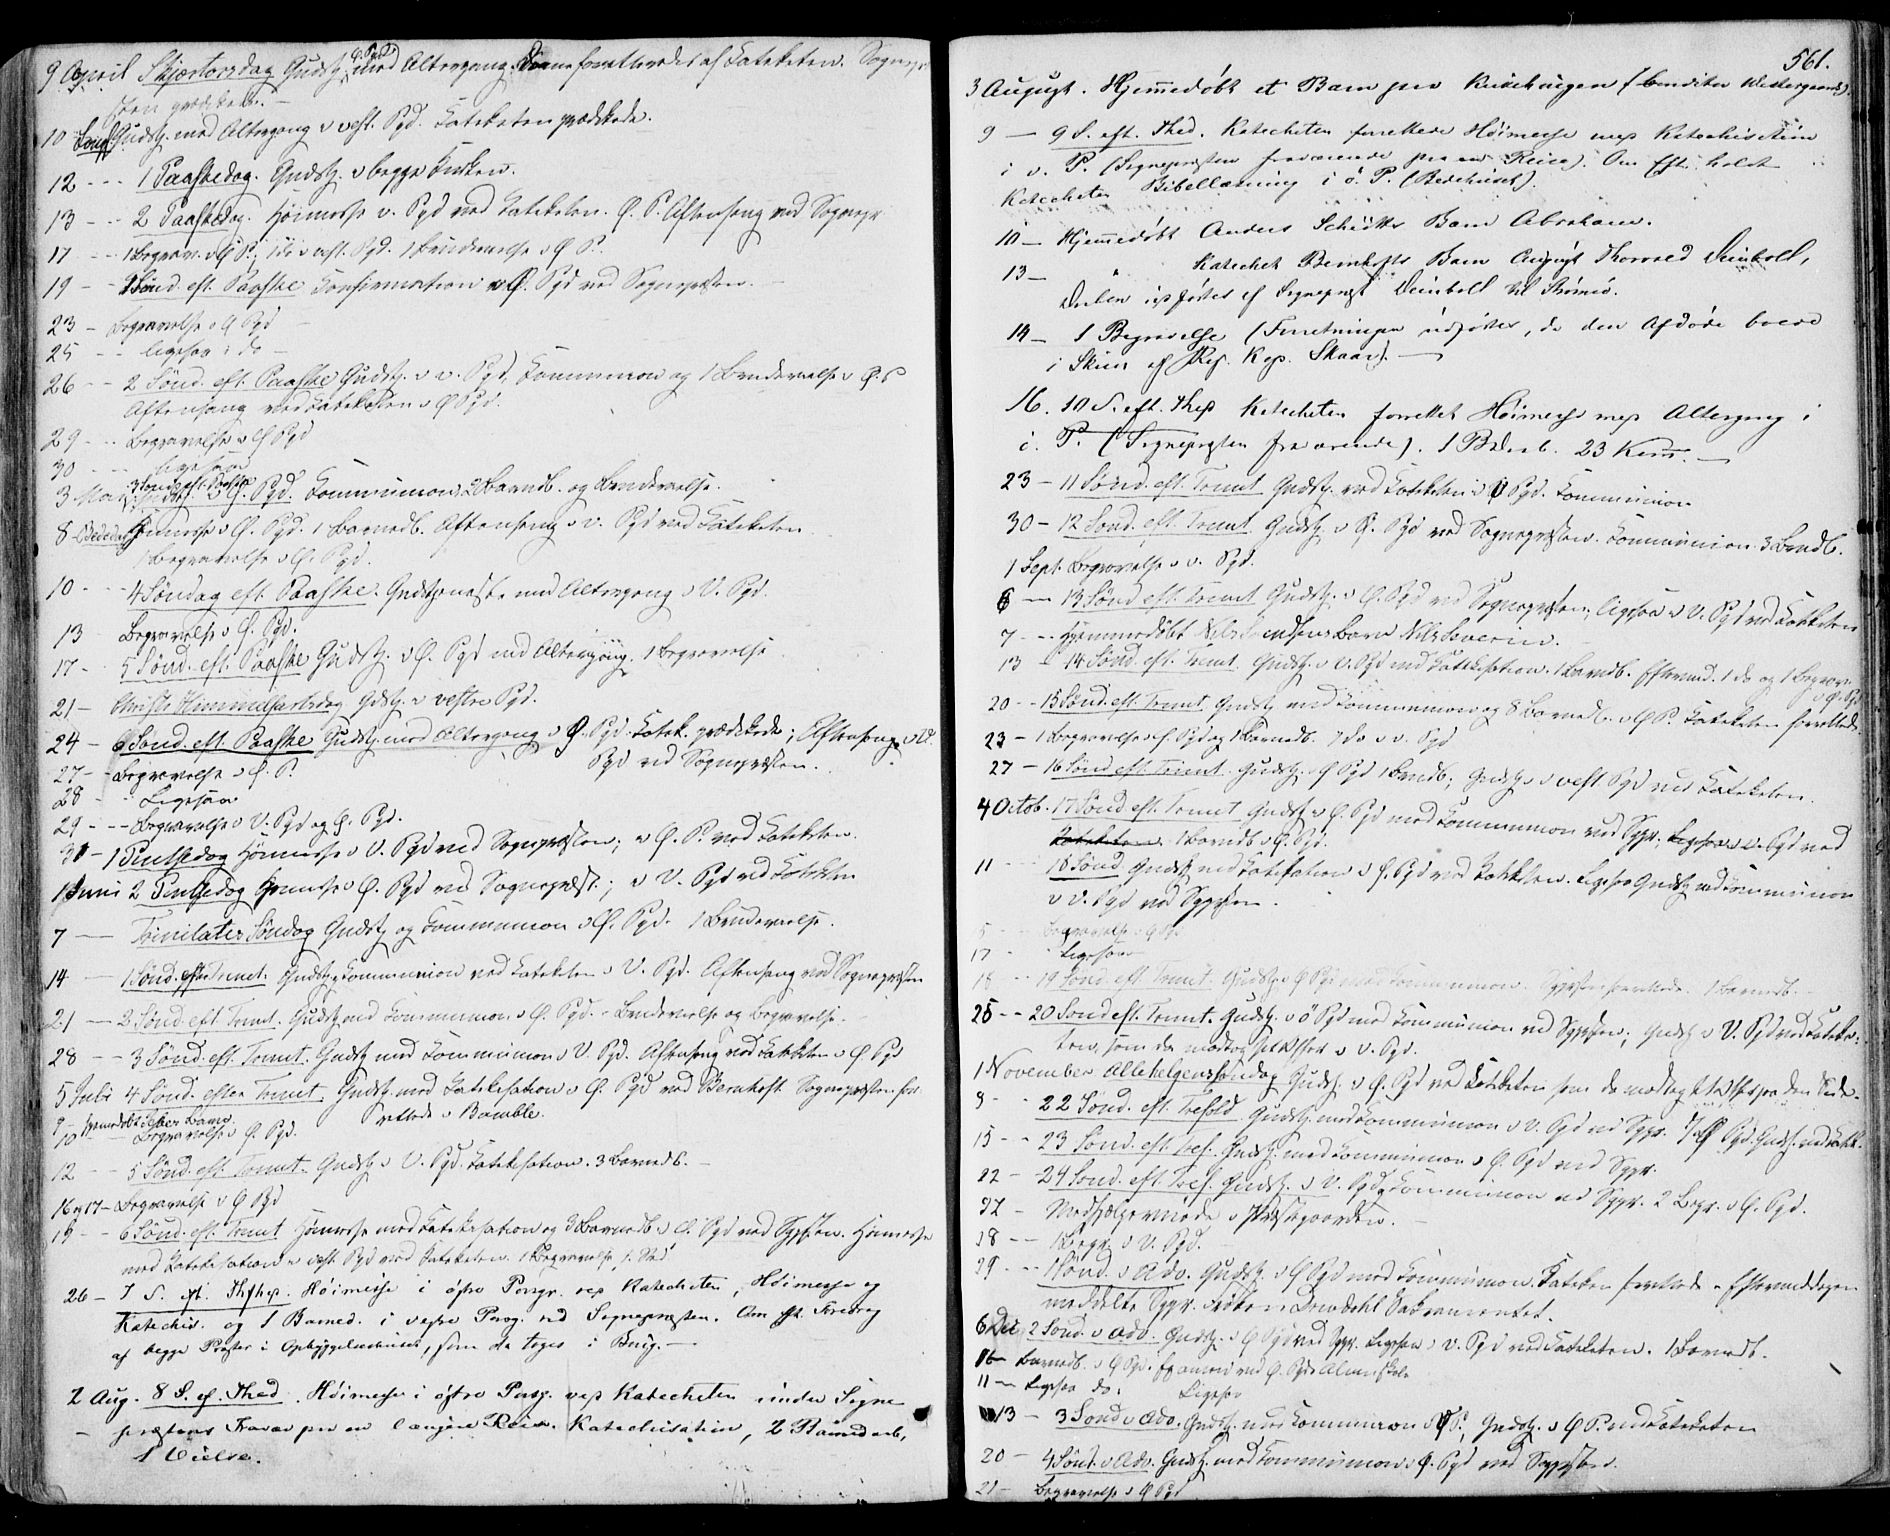 9 April Skjærtorsdag Gudstj. med Altergang. forrettedes af Kateketen. Sognepr
sten prædikede. —
10 Gudstj. med Altergang i vest. Pgd. Kateketen prædikede.
12 - - - 1 Paaskedag. Gudstj. i begge Kirker.
13 - - - 2 Paaskedag. Høimesse v. Pgd ved Kateketen. Ø. P. Aftensang ved Sognepr
17 - - 1 Begrav. i Ø P.; 1 do i vest. Pgd. 1 Brudevielse i Ø P.
19 - - 1 Sönd. eft. Paaske Confirmation i Ø. Pgd ved Sognepræsten. —
23 - Begravelse i Ø Pgd —
25 - - ligesaa i do —
26 - - 2 Sönd. eft. Paaske Gudstj. i v. Pgd, Communion og 1 Brudevielse i Ø. P
Aftensang ved Kateketen i Ø Pgd.
29 - - Begravelse i Ø Pgd
30 - - - ligesaa
3 Sönd. eft. Paaske
3 Mai Gudstj. i Ø. Pgd. Communion, 2 Barnedb. og Brudevielse.
8 - Bededag Høimesse i Ø. Pgd. 1 Barnedb. Aftensang i v. Pgd ved Kateketen
1 Begravelse i Ø. Pgd.
10 - - - 4 Søndag eft. Paaske. Gudstjeneste med Altergang i V. Pgd.
13 Begravelse i Ø. Pgd.
17 - - 5 Sönd. eft. Paaske Gudstj. i Ø. Pgd med Altergang. 1 Begravelse
21 - Christi Himmelfartsdag Gdstj. i vestre Pgd.
24 - 6 Sönd. eft. Paaske Gudstj. med Altergang i Ø. Pgd. Katek. prædikede; Aftensang i V.
Pgd ved Sognepræsten.
27 - - Begravelse i Ø. P.
28 - " Ligesaa
29 - - - Begravelse i V. Pgd og Ø. Pgd.
31 - 1 Pintsedag Høimesse i V. Pgd ved Sognepræsten; i Ø. P. ved Kateketen.
1 Juni 2 Pintsedag Høimesse i Ø. Pgd ved Sognepræst.; i V. Pgd ved Kateketen
7 — Trinitatis Söndag Gudstj og Communion i Ø. Pgd. 1 Brudevielse.
14 — 1 Sönd. efter Trinit. Gudstj. Communion ved Kateketen i V. Pgd. Aftensang ved Sognepræsten
21 — 2 Sönd. eft. Trinit. Gudstj. med Communion i Ø. Pgd. - Brudevielse og Begravelse. -
28 - - 3 Sönd. eft. Trinit. Gudstj. med Communion i V. Pgd. Aftensang ved Kateketen i Ø Pgd
5 Juli 4 Sönd. efter Trinit. Gudstj. med Katekisation i Ø. Pgd ved Bernhoft. Sognepræsten for
rettede i Bamble.
9 - Hjemmedøbt Barn.
10 - Begravelse i Ø. Pgd.
12 - - 5 Sönd. eft. Trinit. Gudstj. i V. Pgd. Katekisation. 3 Barnedb. —
16 og 17 - Begravelse i Ø Pgd
19 - - 6 Sönd. eft. Trinit Høimesse med Katekisation og 3 Barnedb i Ø. Pgd ved Sgpsten. Høimesse
med Katekisation i vest. Pgd ved Kateketen. 1 Begravelse
26 - 7 S. eft. Høimesse i østre Prgj. ved Katecheten, Høimesse og
Katechis. og 1 Barned. i vestre Prgj. ved Sognepræsten. Om Eft. Foredrag
af begge Præster i Opbyggelseshuset, som da toges i Brug. —
2 Aug. 8 S. ef. Thed. Høimesse i østre Prgj. ved Katecheten under Sogne
— præstens Fravær paa en længere Reise. Katechisation, 2 Barnedaab,
1 Vielse.
561.
3 August. Hjemmedøbt et Barn paa
9 — 9 S. eft. Thed. Katecheten forrettede Høimesse med Katechisation
i v. P. (Sognepræsten fraværende paa en Reise). Om Eft. holdt
Katecheten Bibellæsning i ö. P. (Bedehuset).
10 — Hjemmedøbt Anders Schiötts Barn Abraham.
13 — " Katechet Bernhofts Barn August Thorvald Deinboll,
Daaben udførtes af Sognepræst Deinboll til Strömsö.
14 — 1 Begravelse (Forretningen udførtes, da den Afdöde boede
i Skien af Res. Kap. Skaar). —
16. 10 S. eft. Thed Katecheten forrettet Høimesse med Altergang i
P. (Sognepræsten fraværende). 1 Bdaab. 23 Kom. —
23 - 11 Sönd. eft. Trinit Gudstj. ved Kateketen i Ø Pgd. Communion
30 - 12 Sönd. eft. Trinit. Gudstj. i Ø. Pgd ved Sognepræsten. Communion. 3 Brndb.
1 Sept. Begravelse i v. Pgd.
6 — 13 Sönd eft. Trinit Gudstj. i Ø. Pgd ved Sognepræsten; ligesaa i V. Pgd ved Kateketen
7 - - Hjemmedøbt Nils Barn Nils Severin. —
13 - 14 Sönd. eft. Trinit. Gudstj. i V. Pgd med Katekisation. 1 Barndb. Eftermid. 1 do og 1 Begrav.
i Ø. Pgd
20 - - 15 Sönd. eft. Trinit. Gudstj med Communion og 8 Barnedb. i Ø P. Kateketen forrettede
23 - 1 Begravelse i Ø. Pgd og 1 Barnedb. 1 do i v. Pgd
27 - 16 Sönd eft. Trinit. Gudstj. Ø Pgd 1 Brndb; Gudstj. i vest. Pgd ved Kateketen.
4 Octob. 17 Sönd eft. Trinit Gudstj i Ø. Pgd med Communion ved Sgpr. ligesaa i v. Pgd ved
Kateketen. 1 Barndb i Ø. Pgd.
11 - - - 18 Sönd Gudstj med Katekisation i Ø. Pgd ved Kateketen. Ligesaa Gudstj med Communion
i V. Pgd ved Sgpsten.
5 - - Begravelse Ø. Pgd
17 - " Ligesaa
18 - - 19 Sönd. eft. Trinit. Gudstj. i Ø Pgd med Communion. Sgpsten forrettede. 1 Barnedb. —
25 - - 20 Sönd eft. Trinit. Gudstj. i Ö Pgd med Communion ved Sgpsten; Gudstj i V. Pgd ved Kateke-
ten, som da modtog i v. Pgd.
1 November Allehelgenssöndag Gudstj. i Ø. Pgd ved Kateketen som da modtog
8 - - 22 Sönd. eft. Trefold. Gudstj. med Communion i V. Pgd ved Sgpr. I Ø Pgd. Gudstj. ved Katk.
15 - - 23 Sönd. eft. Tref. Gudstj. med Communion i Ø. Pgd ved Sgpr.
22 - 24 Sönd. eft. Tref. Gudstj. i V. Pgd, Communion ved Sgpr. 2 Begr. i Ø. Pgd.
27 - Medhjælpermøde i Præstegaarden. —
28 - - 1 Begr. i V. Pgd. —
29 - - - 1 Sönd. i Adv. Gudstj. i Ø Pgd med Communion. Kateken forrettede. Eftermiddagen
meddelte Sgpr. Sakramentet.
6 Dec 2 Sönd. i Adv. Gudstj. i Ø Pgd ved Sgpr. Ligesaa i v. Pgd ved Kateketen. 1 Barnedb.
16 - Barnedb. i Ø Pgd. Examen ved Ø. Pgds Almueskole
11 - - Ligesaa do. Ligesaa
13 - 3 Sönd i Adv. Gudstj. med Communion i P., Gudstj. i Ø P. ved Kateketen
20 - 4 Sönd. i Adv. Gudstj. med Communion i Ø. Pgd ved Sgpsten.
21 - Begravelse i Ø Pgd